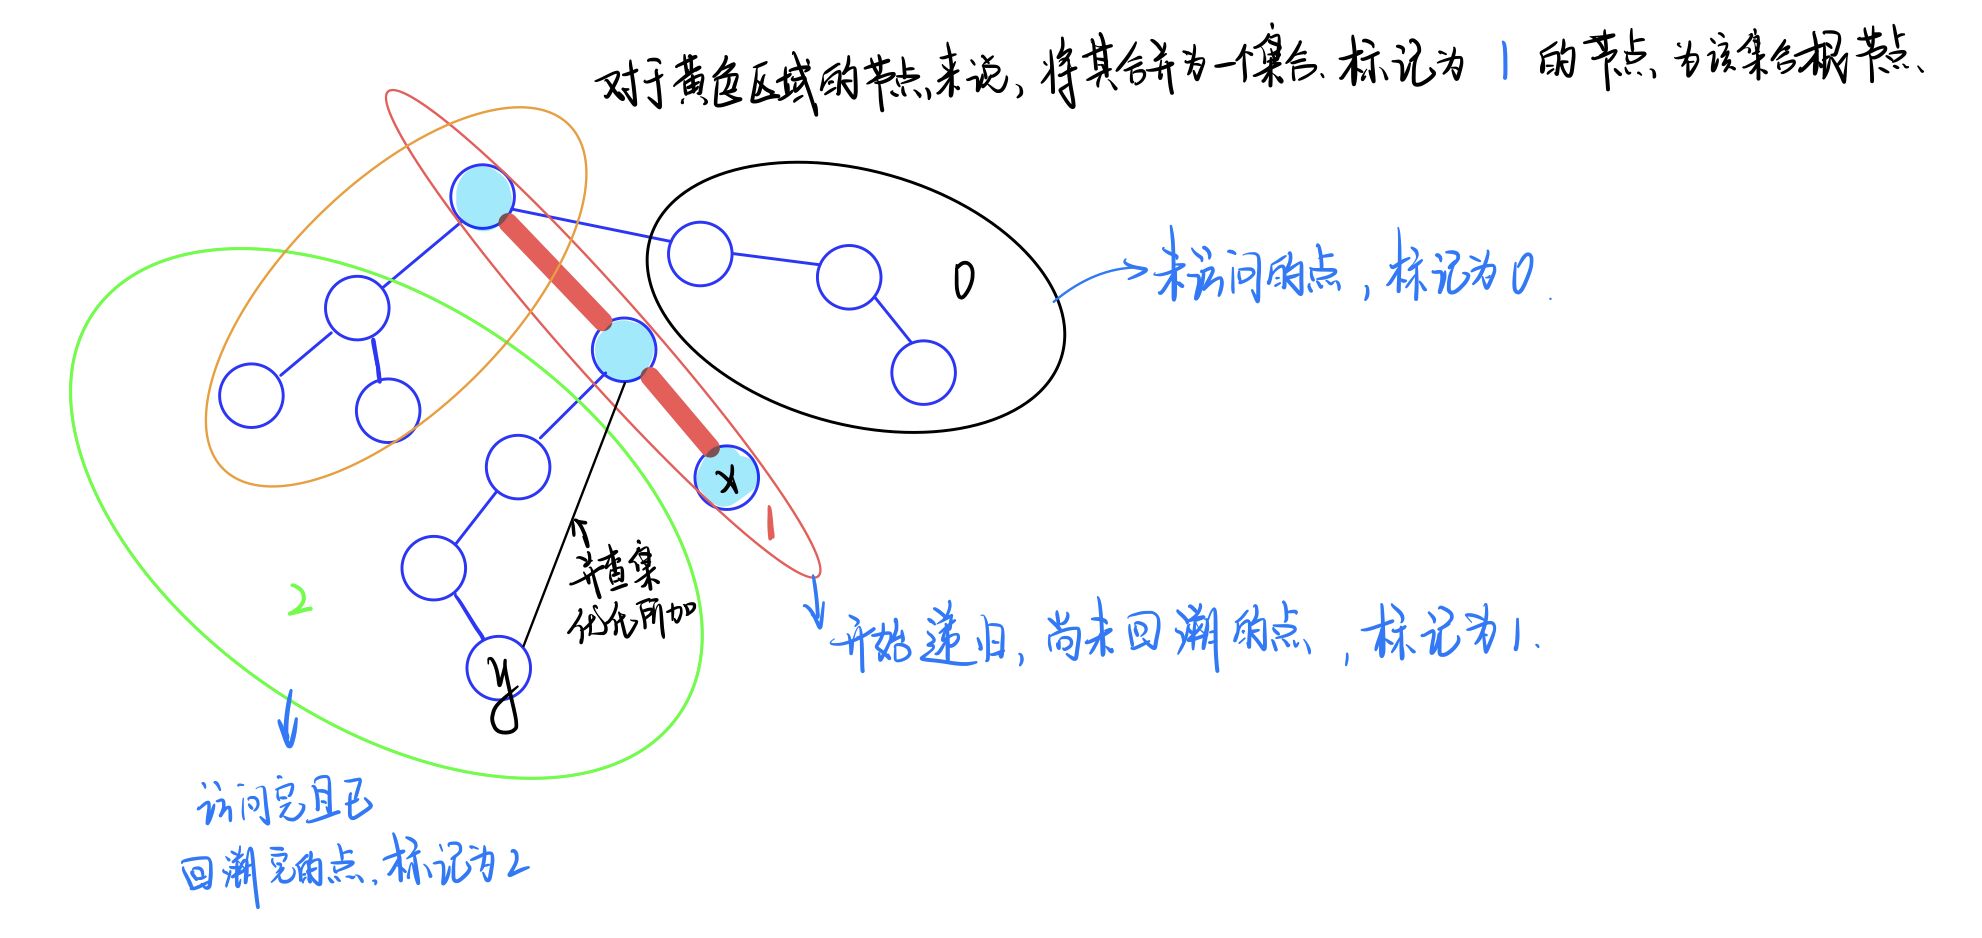 对于黄色区域的节点来说,将其合并为一个集合、标记为 1 的节点为该集合根节点、
0
未访问的点,标记为0.
x
1
并查集
优化所加
2
开始递归,尚未回溯的点,标记为1.
y
访问完且已
回溯完的点、标记为2